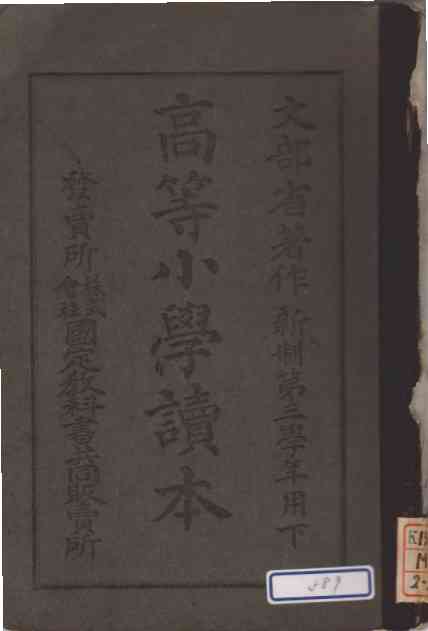 文部省著作 新制第三學年用下
高等小學讀本
發賣所 株式會社國定敎科書共同販賣所
589